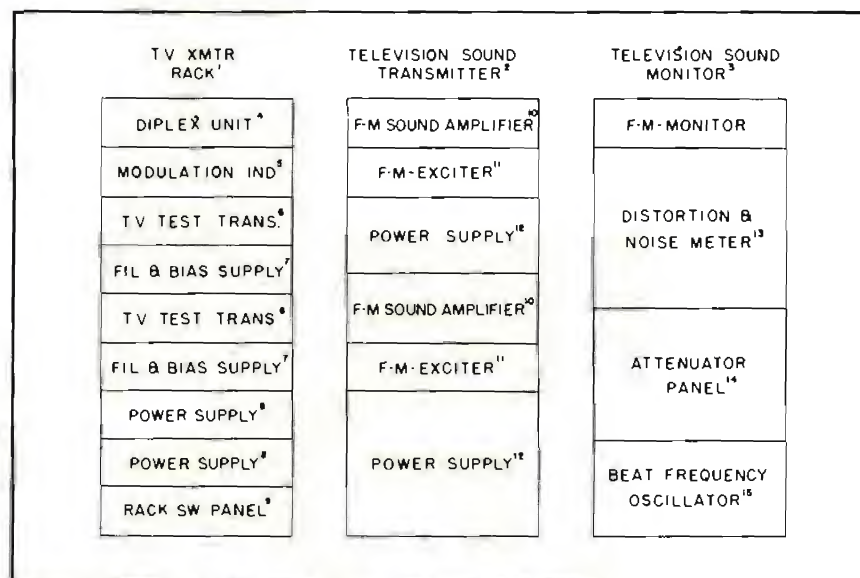 TV XMTR
RACK¹
DIPLEX UNIT⁴
MODULATION IND⁵
TV TEST TRANS.⁶
FIL & BIAS SUPPLY⁷
TV TEST TRANS⁶
FIL & BIAS SUPPLY⁷
POWER SUPPLY⁸
POWER SUPPLY⁸
RACK SW PANEL⁹
TELEVISION SOUND
TRANSMITTER²
F-M SOUND AMPLIFIER¹⁰
F-M-EXCITER¹¹
POWER SUPPLY¹²
F-M SOUND AMPLIFIER¹⁰
F-M-EXCITER¹¹
POWER SUPPLY¹²
TELEVISION SOUND
MONITOR³
F-M-MONITOR
DISTORTION &
NOISE METER¹³
ATTENUATOR
PANEL¹⁴
BEAT FREQUENCY
OSCILLATOR¹⁵